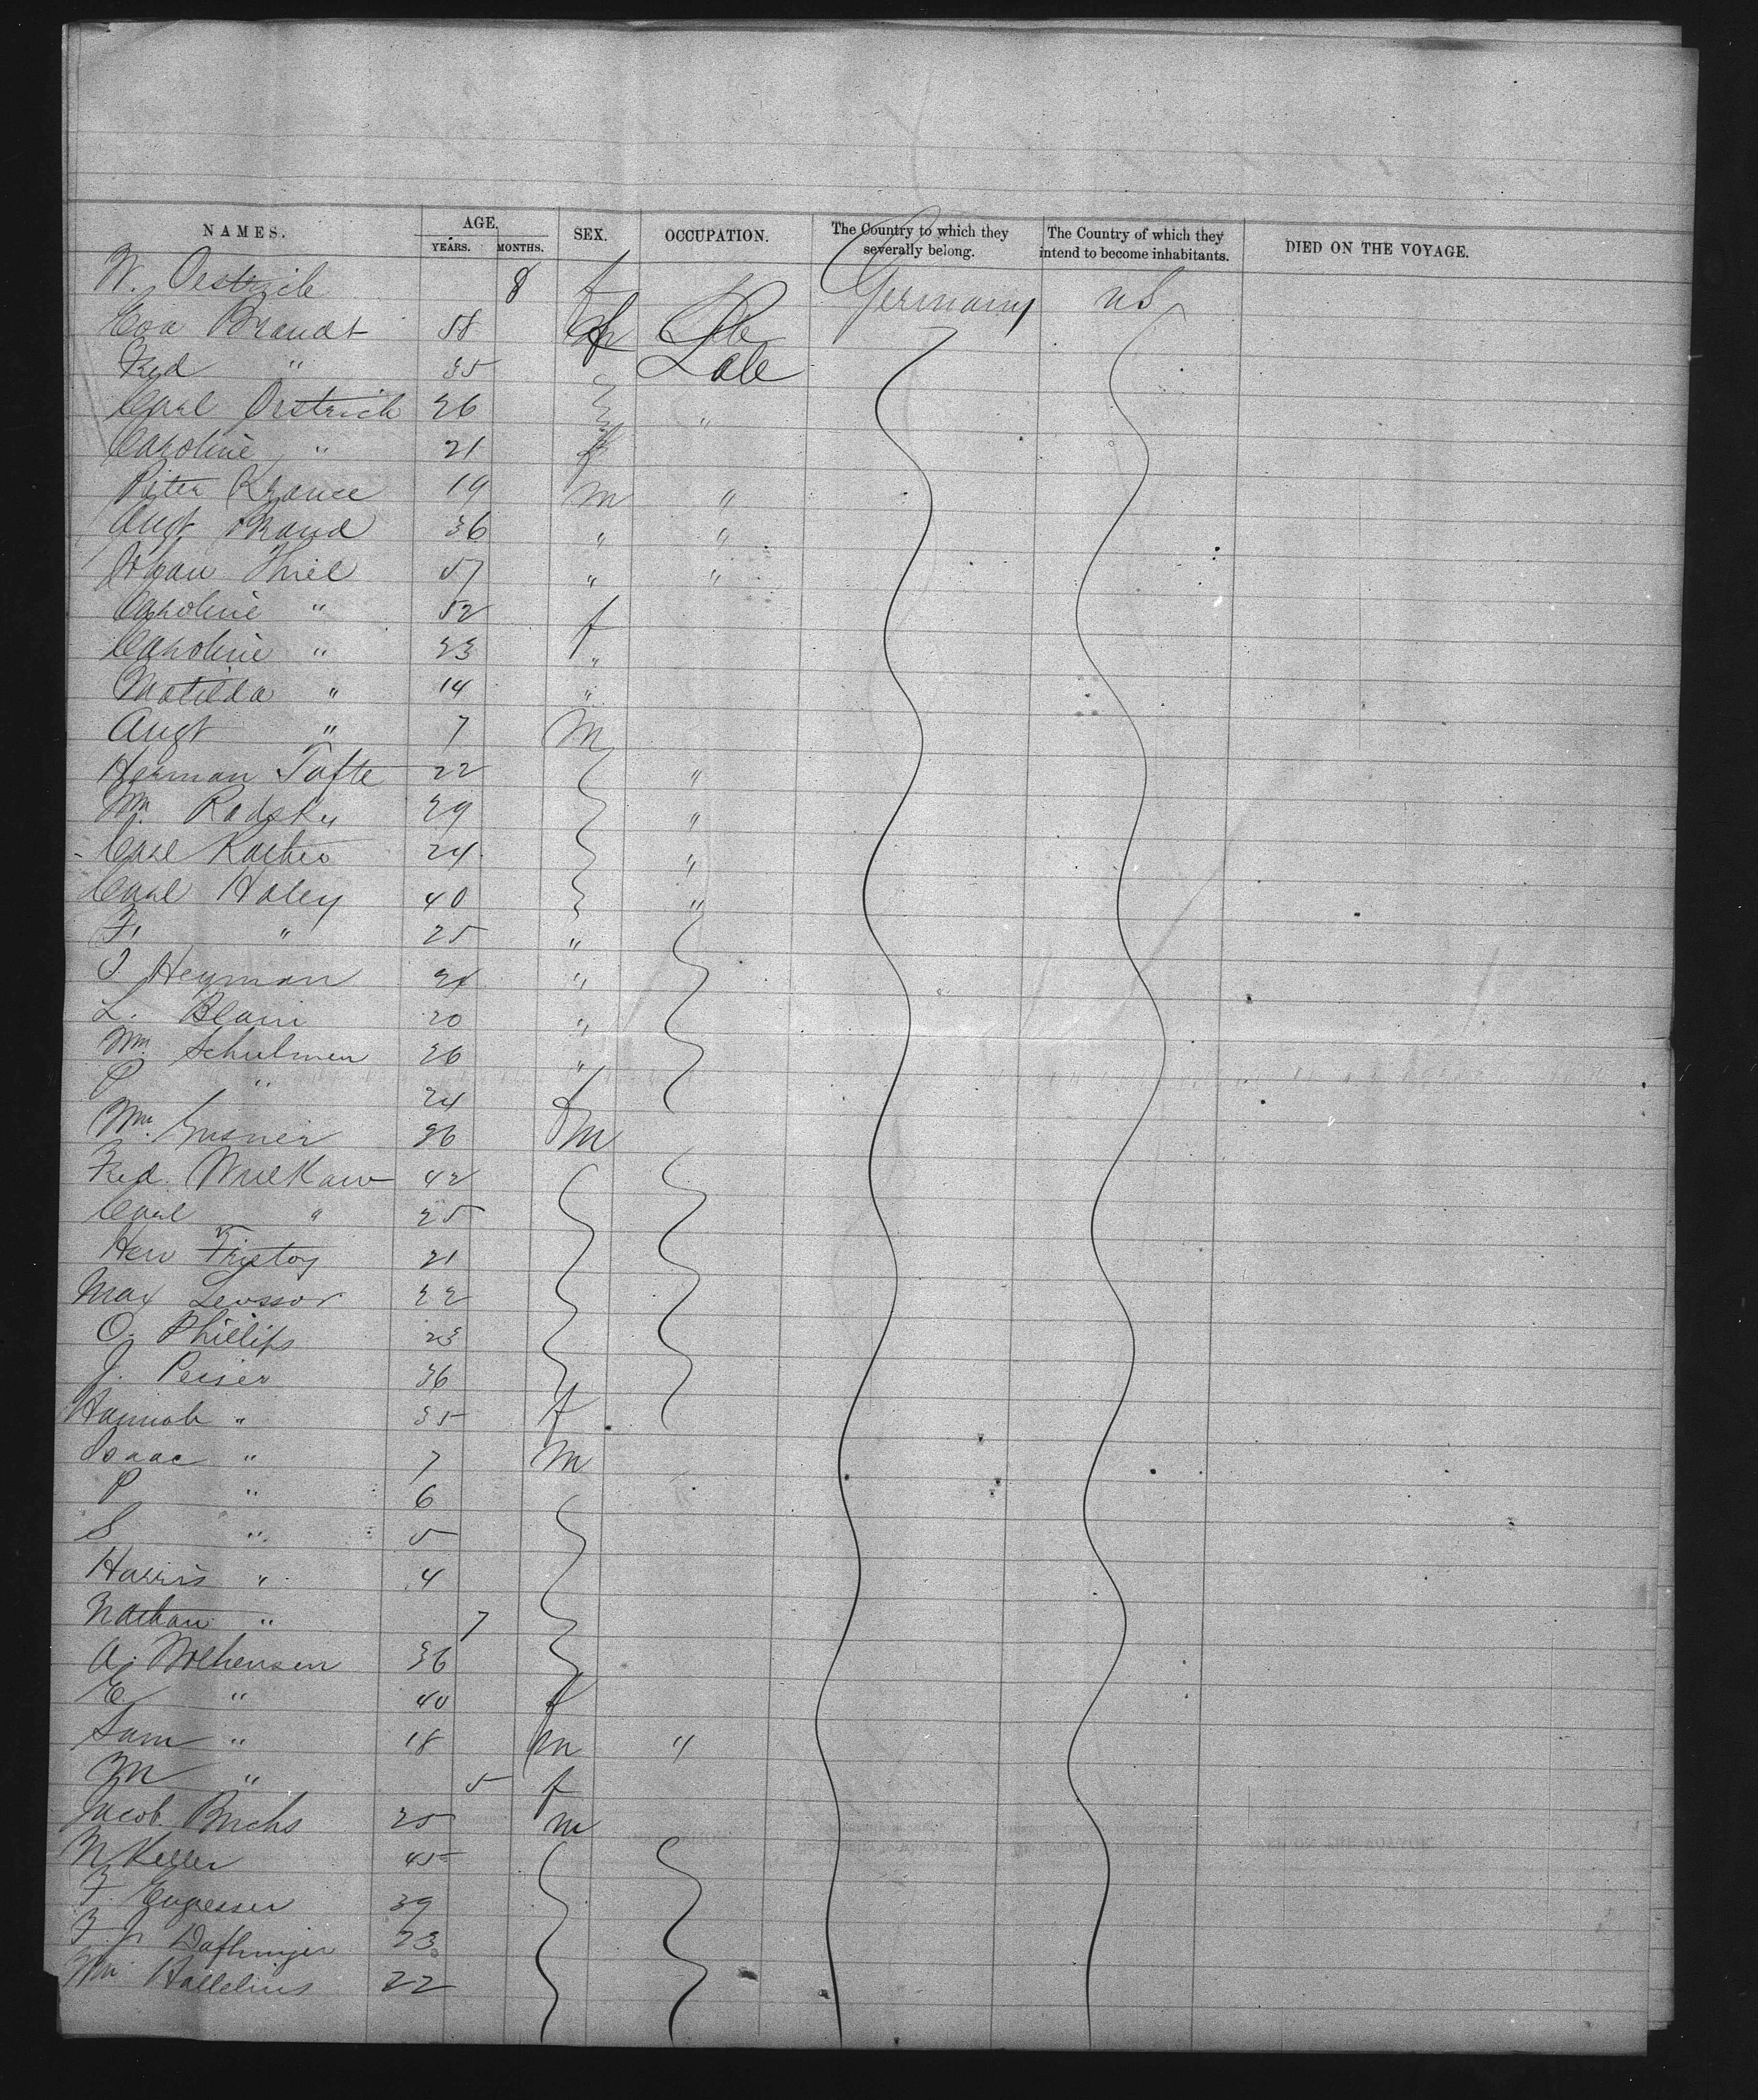 NAMES. AGE. YEARS. MONTHS. SEX. OCCUPATION. The Country to which they severally belong. The Country of which they intend to become inhabitants. DIED ON THE VOYAGE.
W. Oestrich 8 f Germany US
Eva Brandt 58 f
Fred " 35 Lab
Carl Oistrich 26 "
Caroline " 21 f
Peter Krance 19 m "
Augt Brand 36 " "
Johan Thiel 57 " "
Caroline " 52 f
Caroline " 23 "
Matilda " 14 "
Augt " 7 M
Herman Tafte 22 "
Wm. Radsky 29 "
Carl 24 "
Carl Haley 40 "
F. " 25 "
I Heyman 24 "
L. Blain 20 "
Wm. Schulmen 26 "
P " 24 f
Wm. Gusner 36 m
Fred. 42
Carl " 25
21
Max Levssor 22
O. Phillips 23
J. Peiser 36
Hannah " 35 f
Isaac " 7 m
P " 6
S " 5
Harris " 4
Nathan " 7
A. Wolhensen 36
E " 40 f
Sam " 18 m "
M " 5 f
Jacob Bruchs 25 m
N Keller 45
F. Engesser 39
F. Jr Daflinger 23
Wm. 22